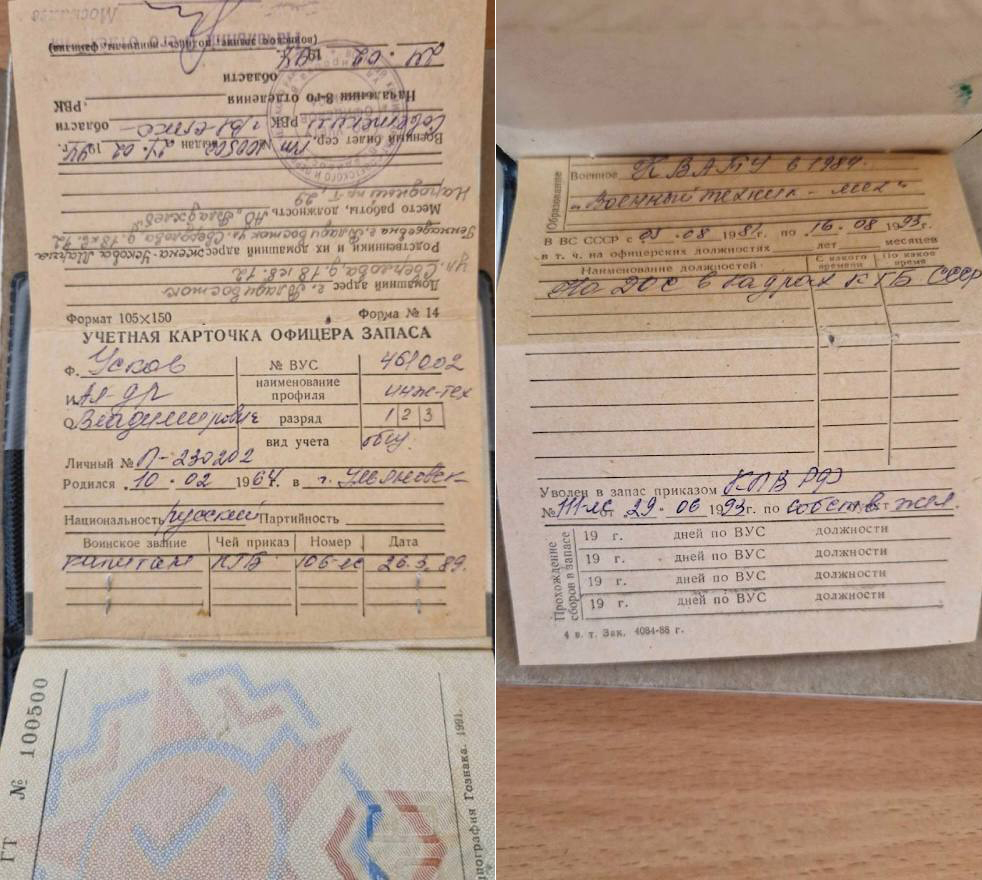 (воинское звание, подпись, инициалы, фамилия)
24. 02 1994 г.
Начальник 3-го отделения РВК
области
Советским РВК г. Вл-стко области
Военный билет сер. ГТ № 100500 выдан 24. 02 1994 г.
Народный пр-т, 29
Место работы, должность АО
Геннадьевна г. Владивосток ул. Свердлова д. 18 кв. 72
Родственники и их домашний адрес жена - Ускова Марина
ул. Свердлова д. 18 кв. 72
Домашний адрес г. Владивосток
Формат 105×150 Форма № 14
УЧЕТНАЯ КАРТОЧКА ОФИЦЕРА ЗАПАСА
Ф. Усков № ВУС 461002
И. Ал-др наименование профиля инж-тех
О. Владимирович разряд 1 2 3
вид учета общ.
Личный № П-230202
Родился 10. 02 1964 г. в г. Ульяновск
Национальность русский Партийность
Воинское звание Чей приказ Номер Дата
капитан КГБ 106-лс 26.3.89.
ГТ № 100500
типография Гознака. 1991.
Образование
Военное КВАТУ в 1984.
„Военный техник - мех"
В ВС СССР с 03 .08 1981 г. по 16. 08 1993 г.
в т. ч. на офицерских должностях лет месяцев
Наименование должностей С какого времени По какое время
На ДОС в кадрах КГБ СССР
Уволен в запас приказом КПВ РФ
№ 111-лс от 29. 06 1993 г. по собств. жел.
Прохождение сборов в запасе
19 г. дней по ВУС должности
19 г. дней по ВУС должности
19 г. дней по ВУС должности
19 г. дней по ВУС должности
4 в. т. Зак. 4084-88 г.